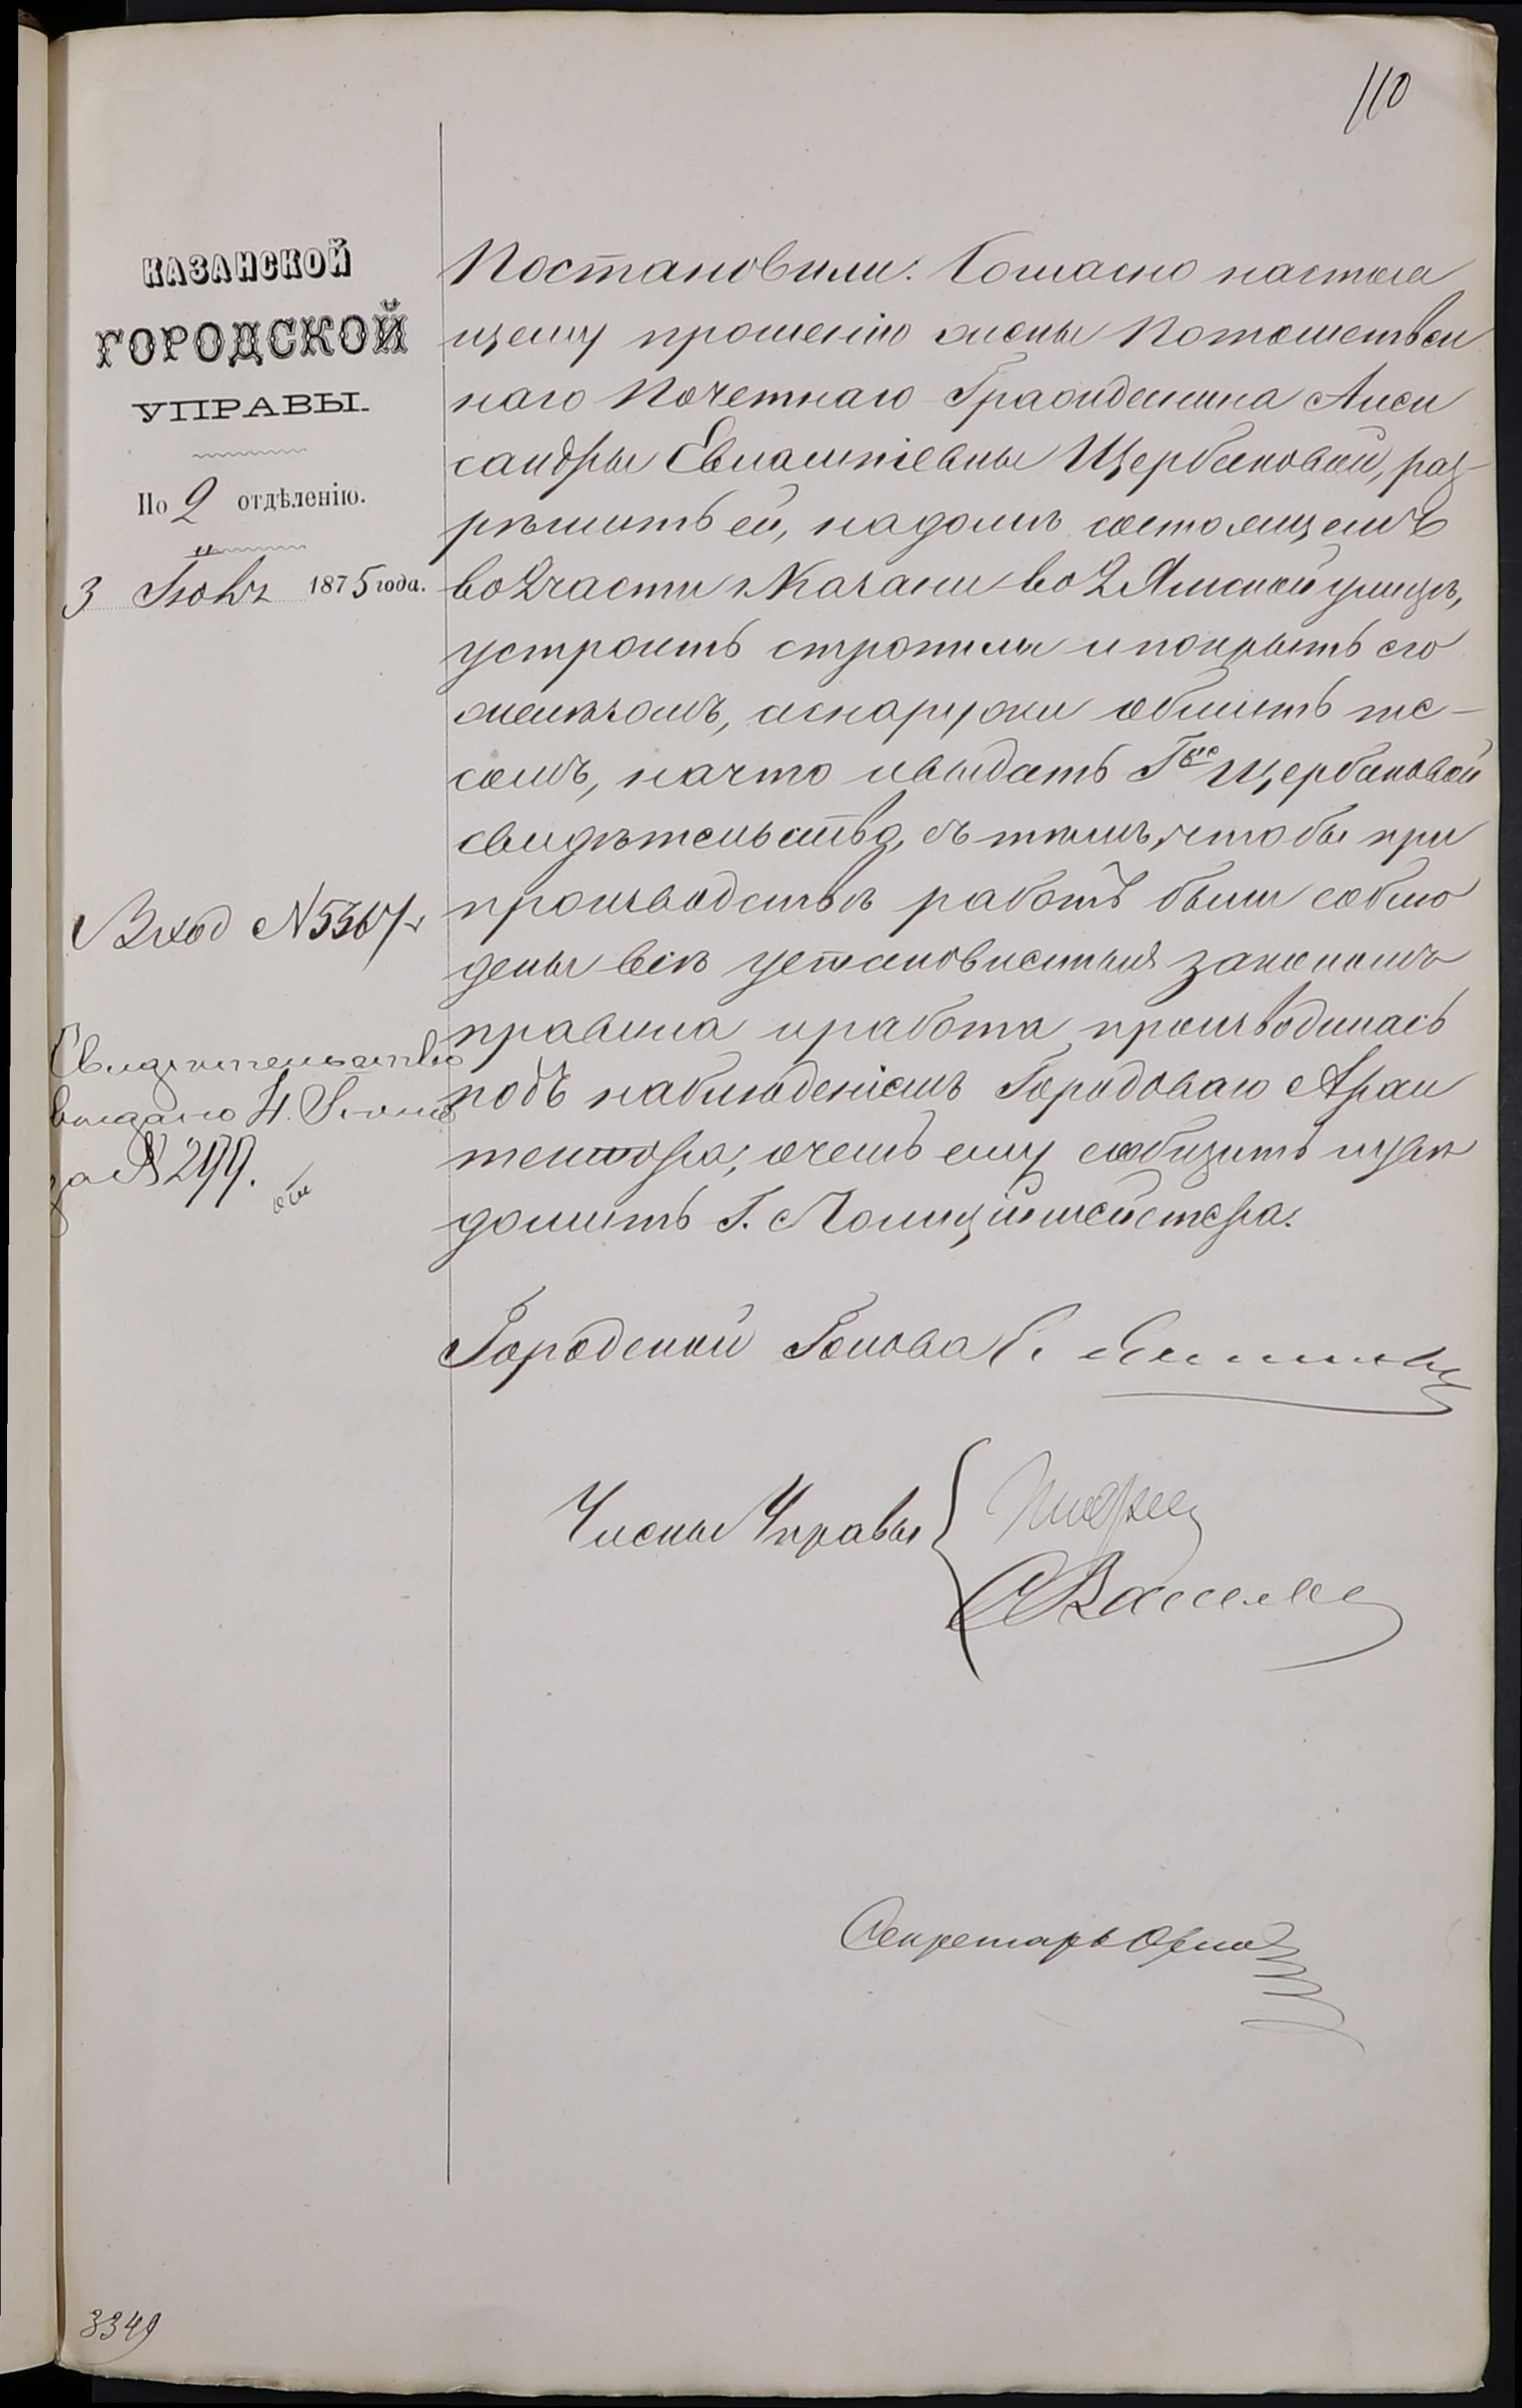 110
КАЗАНСКОЙ
ГОРОДСКОЙ
УПРАВЫ.
По 2 отдѣленію.
3 Іюня 1875 года.
Вход № 5367
Свидѣтельство
выдано 4. Іюня
за № 299.
Постановили: Согласно настоя
щему прошенію жены Потомствен
наго Почетнаго Гражданина Алек
сандры Евлампіевны Щербаковой, раз-
рѣшить ей, на домѣ состоящемъ
во 2 части г. Казани во 2 Ямской улицѣ,
устроить стропилы и покрыть его
желѣзомъ, а снаружи обшить те-
сомъ, на что и выдать Г-же Щербаковой
свидѣтельство, съ тѣмъ, чтобы при
производствѣ работъ были соблю
дены всѣ установленныя закономъ
правила и работа производилась
подъ наблюденіемъ Городоваго Архи
тектора; о чемъ ему сообщить и увѣ
домить Г. Полицiймейстера.
Городской Голова Е.
Члены Управы
Секретарь
3349